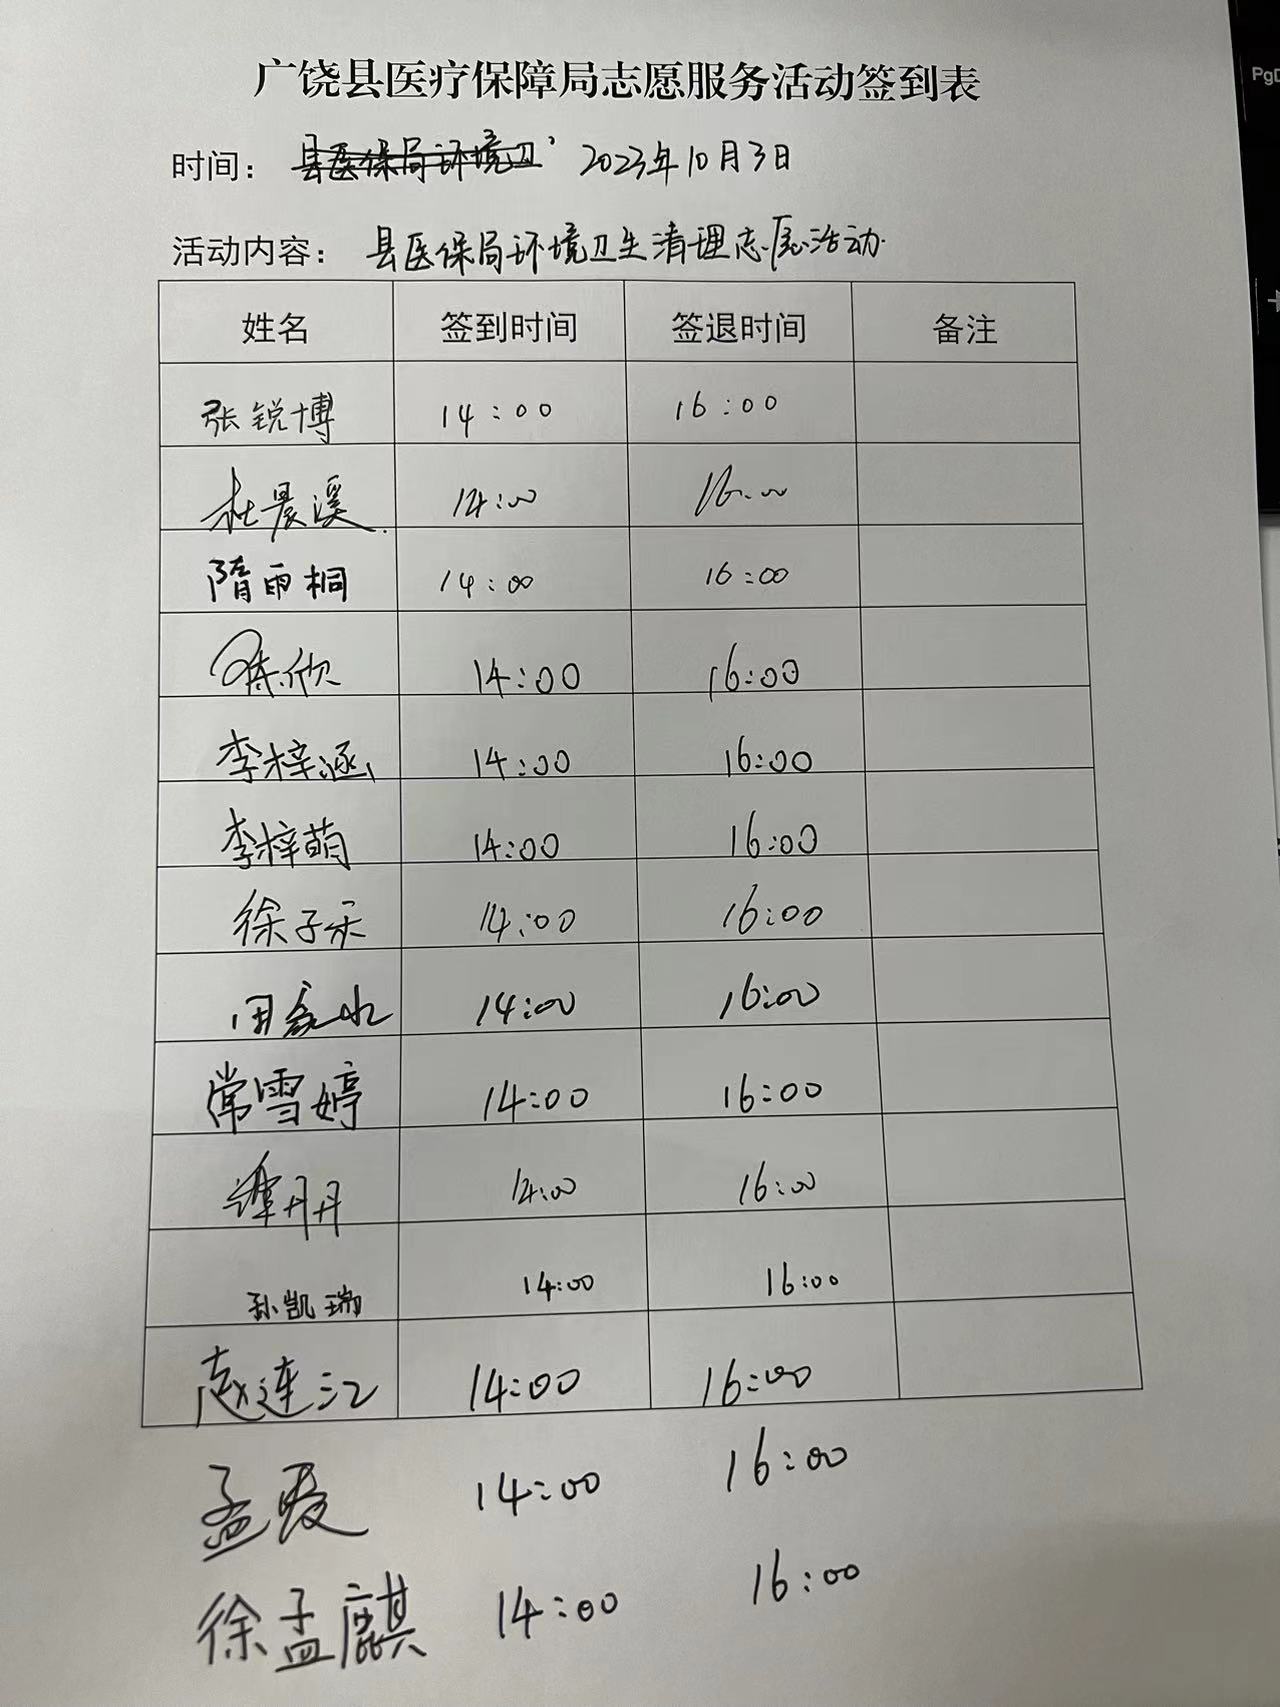 广饶县医疗保障局志愿服务活动签到表
时间： 县医保局环境卫 2023年10月3日
活动内容： 县医保局环境卫生清理志愿活动
姓名 签到时间 签退时间 备注
张锐博 14:00 16:00
杜晨溪 14:00 16:00
隋雨桐 14:00 16:00
陈欣 14:00 16:00
李梓涵 14:00 16:00
李梓萌 14:00 16:00
徐子禾 14:00 16:00
14:00 16:00
常雪婷 14:00 16:00
谭丹丹 14:00 16:00
孙凯瑞 14:00 16:00
赵连江 14:00 16:00
孟 14:00 16:00
徐孟麒 14:00 16:00